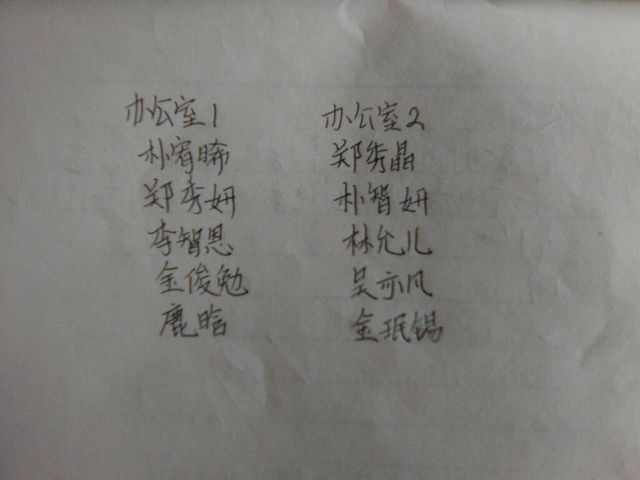 办公室1
朴宥晞
郑秀妍
李智恩
金俊勉
鹿晗
办公室2
郑秀晶
朴智妍
林允儿
吴亦凡
金珉锡